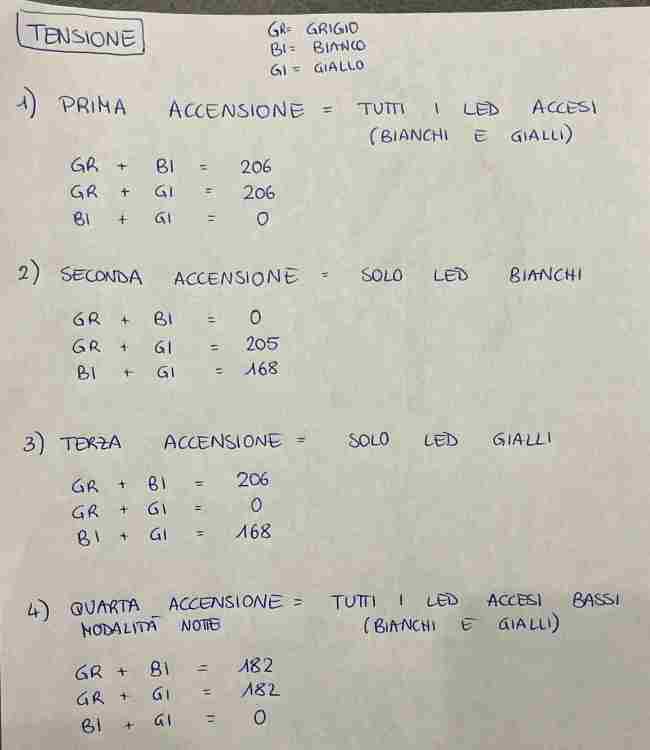 TENSIONE
GR= GRIGIO
BI= BIANCO
GI= GIALLO
1) PRIMA ACCENSIONE = TUTTI I LED ACCESI
(BIANCHI E GIALLI)
GR + BI = 206
GR + GI = 206
BI + GI = 0
2) SECONDA ACCENSIONE = SOLO LED BIANCHI
GR + BI = 0
GR + GI = 205
BI + GI = 168
3) TERZA ACCENSIONE = SOLO LED GIALLI
GR + BI = 206
GR + GI = 0
BI + GI = 168
4) QUARTA ACCENSIONE = TUTTI I LED ACCESI BASSI
MODALITÀ NOTTE (BIANCHI E GIALLI)
GR + BI = 182
GR + GI = 182
BI + GI = 0